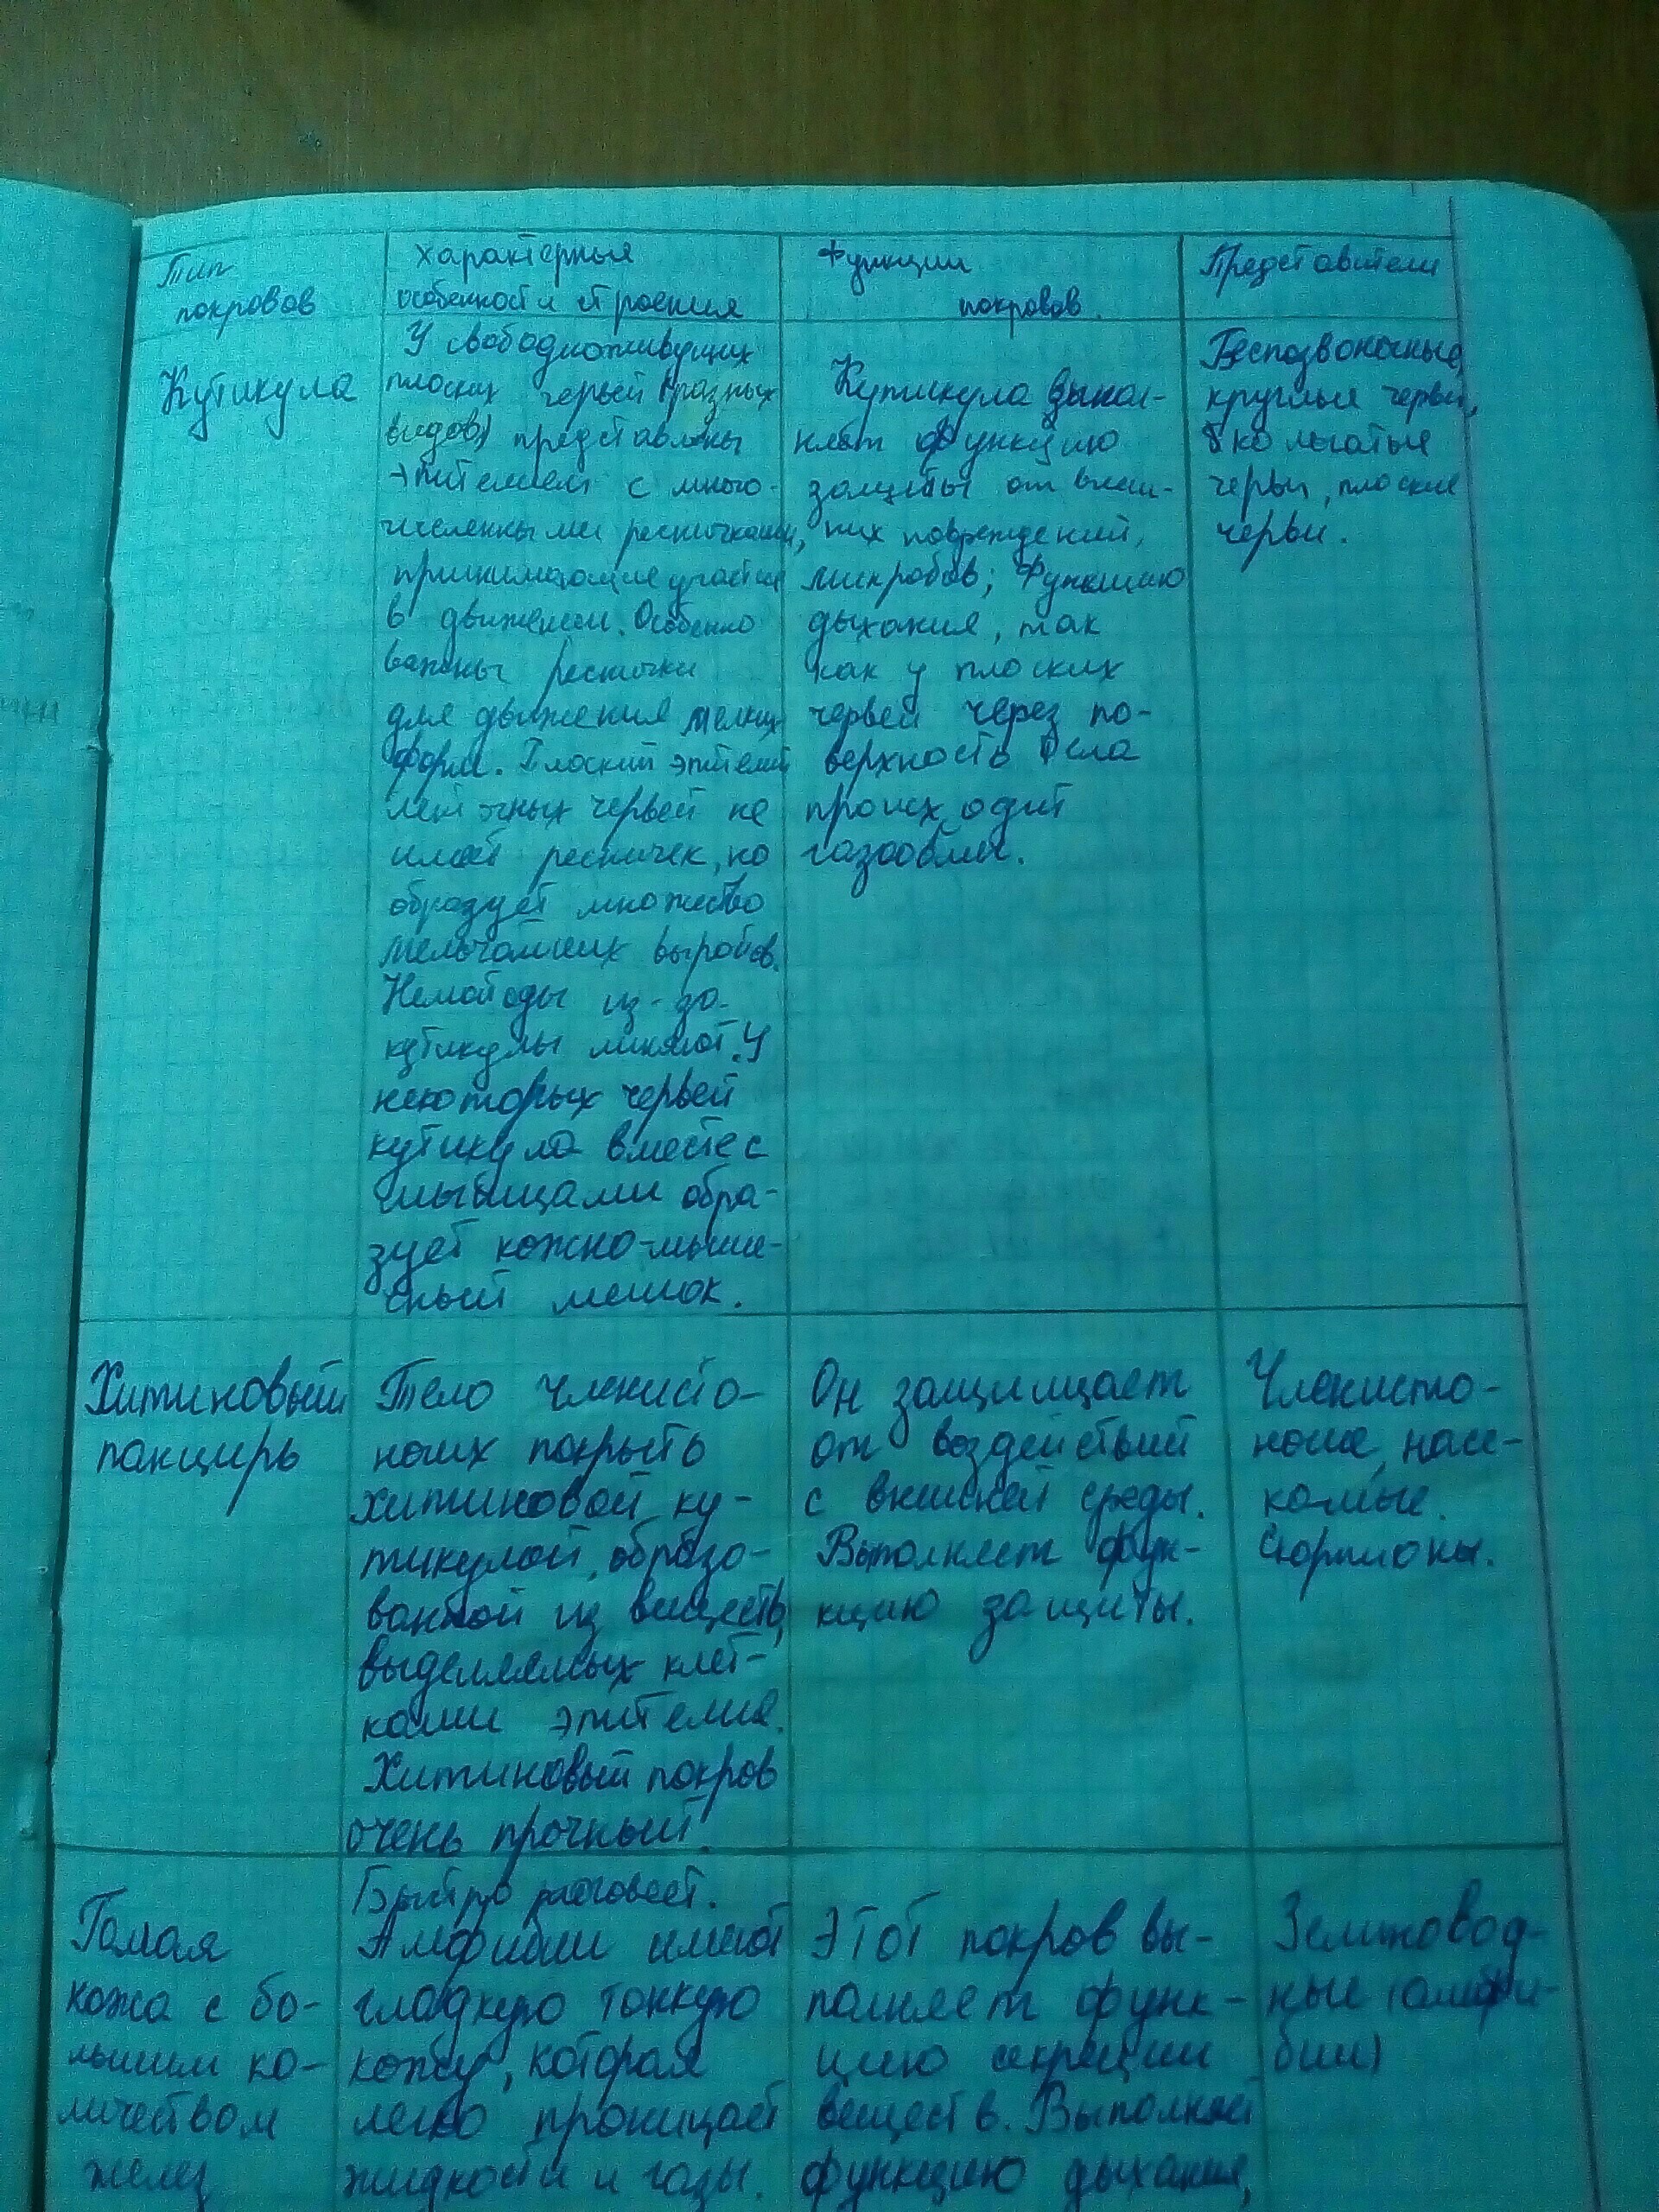 Тип
покровов
характерные
особенности строения
Функции
покровов.
Представители
Кутикула
У свободноживущих
плоских червей (разных
видов) представлены
эпителием с много-
численными ресничками,
принимающие участие
в движении. Особенно
важны реснички
для движения мелких
форм. Плоский эпителий
ленточных червей не
имеет ресничек, но
образует множество
мельчайших выростов.
Нематоды из-за
кутикулы линяют. У
некоторых червей
кутикула вместе с
мышцами обра-
зует кожно-мыше-
чный мешок.
Кутикула выпол-
няет функцию
защиты от внеш-
них повреждений,
микробов; Функцию
дыхания, так
как у плоских
червей через по-
верхность тела
происходит
газообмен.
Беспозвоночные,
круглые черви,
кольчатые
черви, плоские
черви.
Хитиновый
панцирь
Тело членисто-
ногих покрыто
хитиновой ку-
тикулой, образо-
ванной из веществ,
выделяемых клет-
ками эпителия.
Хитиновый покров
очень прочный.
Он защищает
от воздействий
с внешней среды.
Выполняет фун-
кцию защиты.
Членисто-
ногие, насе-
комые.
Скорпионы.
Голая
кожа с бо-
льшим ко-
личеством
желез
Быстро
Амфибии имеют
гладкую тонкую
кожу, которая
легко проницает
жидкости и газы.
Этот покров вы-
полняет функ-
цию секреции
веществ. Выполняет
функцию дыхания,
Земновод-
ные (амфи-
бии)